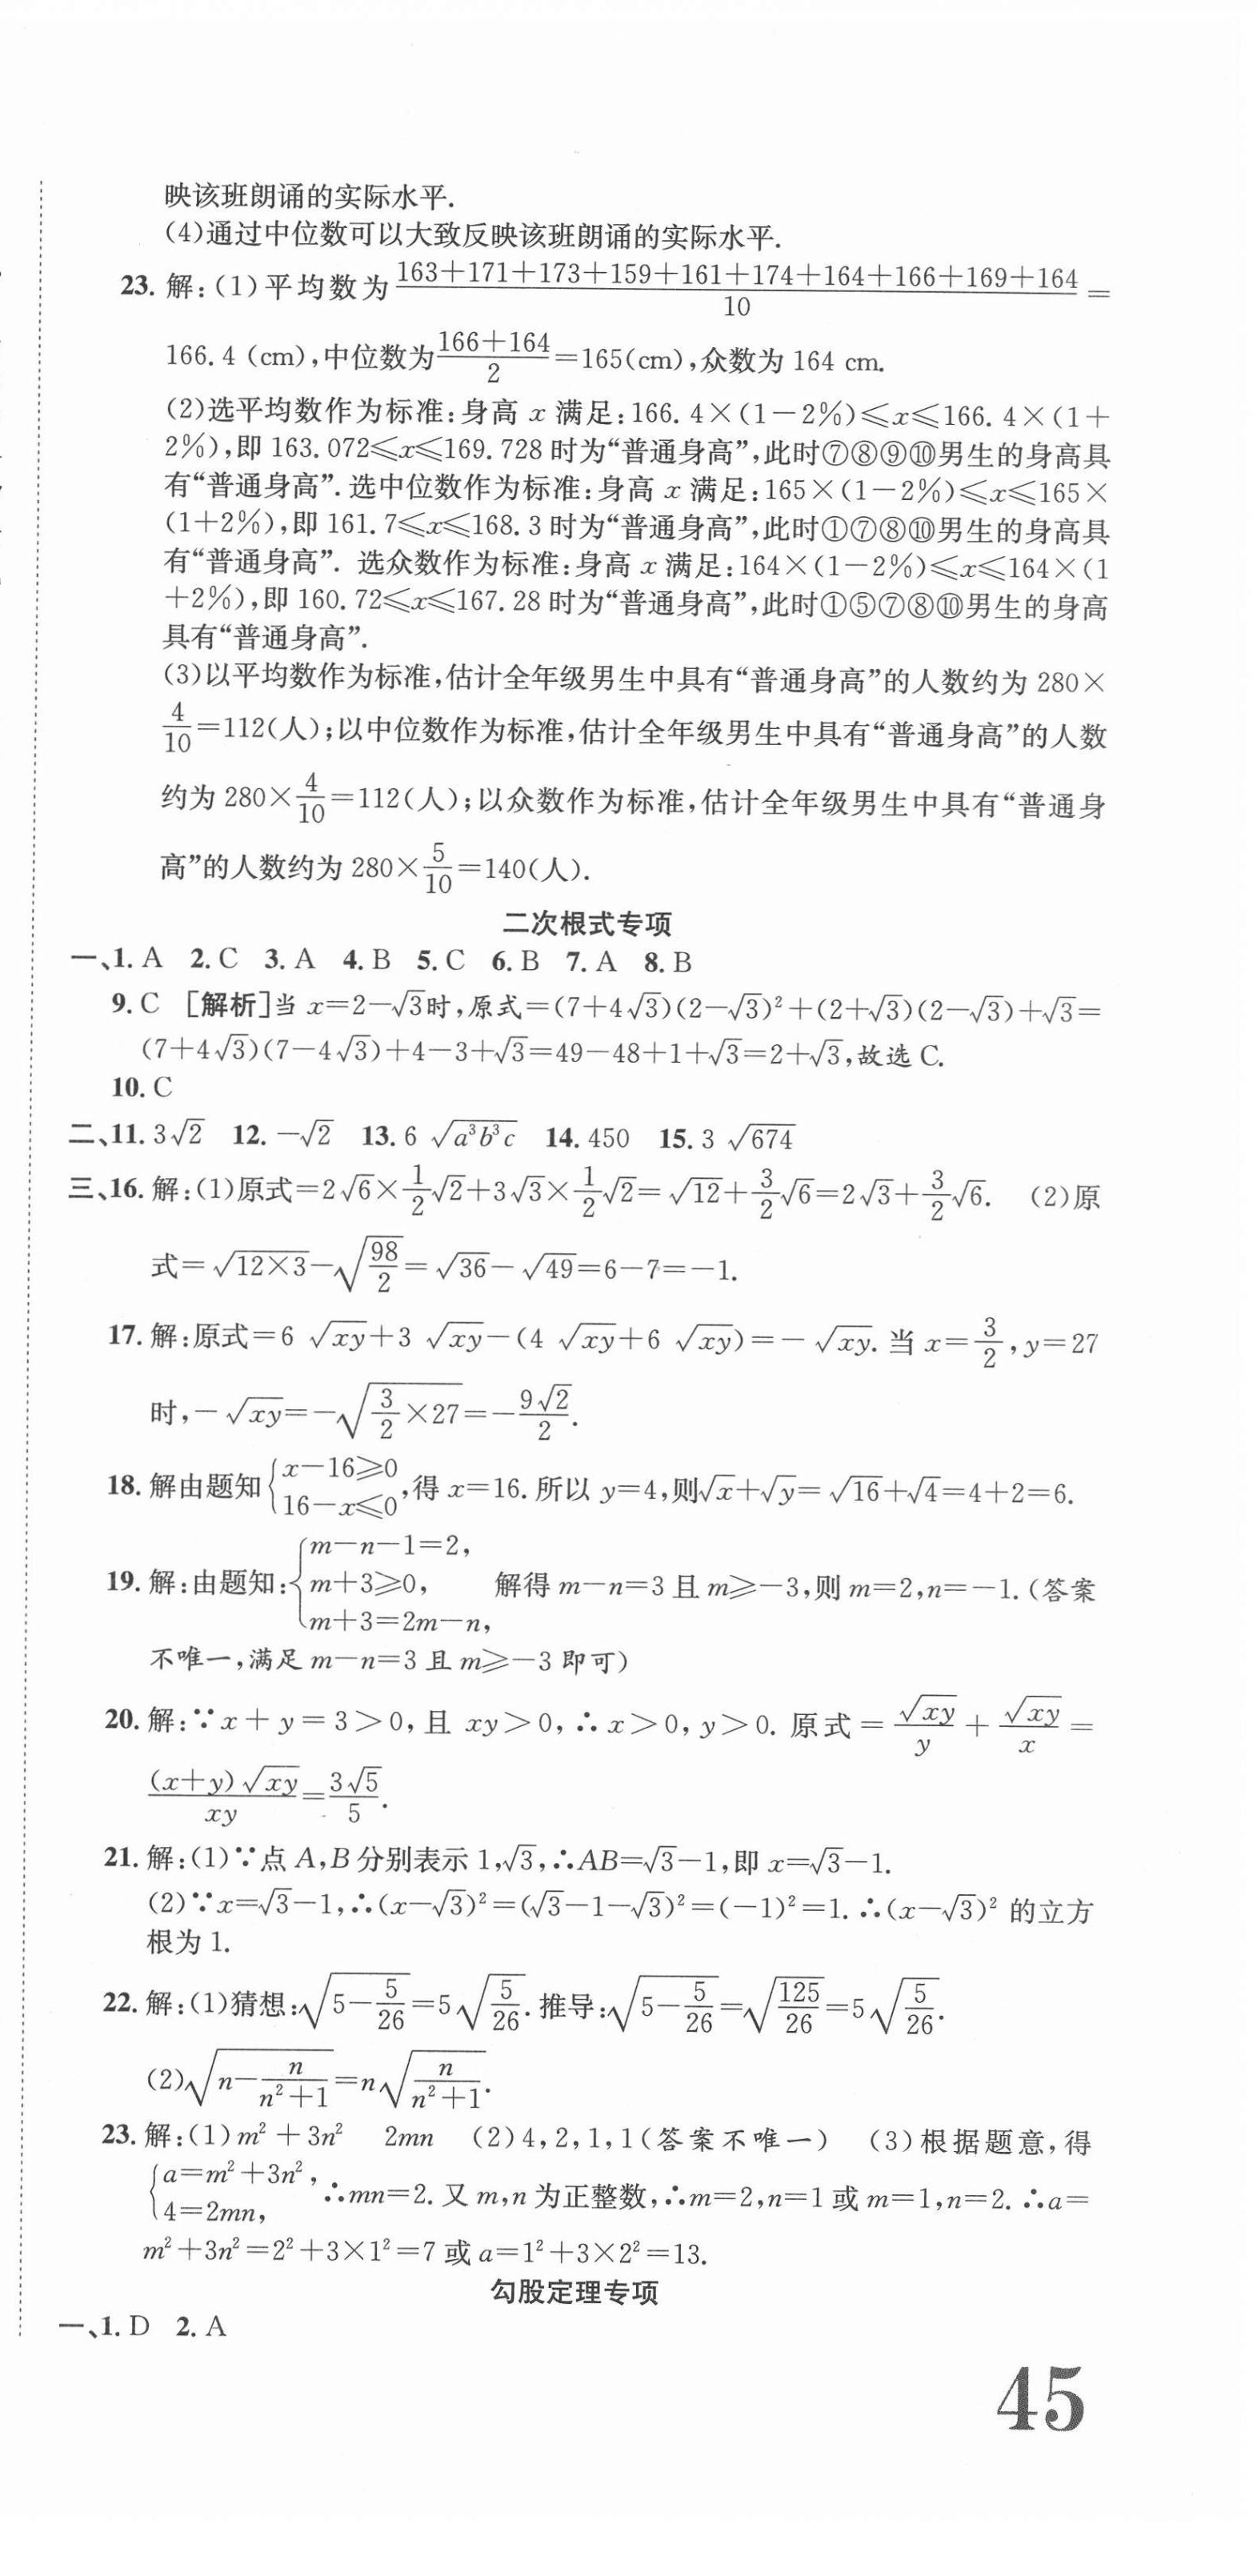 映该班朗诵的实际水平.
(4)通过中位数可以大致反映该班朗诵的实际水平.
23. 解:(1)平均数为 \frac{163+171+173+159+161+174+164+166+169+164}{10} =
166.4 (cm),中位数为\frac{166+164}{2}=165(cm),众数为 164 cm.
(2)选平均数作为标准:身高 x 满足:166.4×(1−2%)⩽x⩽166.4×(1+
2%),即 163.072⩽x⩽169.728 时为“普通身高”,此时⑦⑧⑨⑩男生的身高具
有“普通身高”. 选中位数作为标准:身高 x 满足:165×(1−2%)⩽x⩽165×
(1+2%),即 161.7⩽x⩽168.3 时为“普通身高”,此时①⑦⑧⑩男生的身高具
有“普通身高”. 选众数作为标准:身高 x 满足:164×(1−2%)⩽x⩽164×(1
+2%),即 160.72⩽x⩽167.28 时为“普通身高”,此时①⑤⑦⑧⑩男生的身高
具有“普通身高”.
(3)以平均数作为标准,估计全年级男生中具有“普通身高”的人数约为 280×
\frac{4}{10}=112(人);以中位数作为标准,估计全年级男生中具有“普通身高”的人数
约为 280×\frac{4}{10}=112(人);以众数作为标准,估计全年级男生中具有“普通身
高”的人数约为 280×\frac{5}{10}=140(人).
二次根式专项
一、1. A 2. C 3. A 4. B 5. C 6. B 7. A 8. B
9. C [解析]当 x=2−√3时,原式=(7+4√3)(2−√3)²+(2+√3)(2−√3)+√3=
(7+4√3)(7−4√3)+4−3+√3=49−48+1+√3=2+√3,故选 C.
10. C
二、11. 3√2 12. −√2 13. 6 \sqrt{a³b³c} 14. 450 15. 3 \sqrt{674}
三、16. 解:(1)原式=2√6×\frac{1}{2}√2+3√3×\frac{1}{2}√2=\sqrt{12}+\frac{3}{2}√6=2√3+\frac{3}{2}√6. (2)原
式=\sqrt{12×3}−\sqrt{\frac{98}{2}}=\sqrt{36}−\sqrt{49}=6−7=−1.
17. 解:原式=6 \sqrt{xy}+3 \sqrt{xy}−(4 \sqrt{xy}+6 \sqrt{xy})=−\sqrt{xy}. 当 x=\frac{3}{2},y=27
时,−\sqrt{xy}=−\sqrt{\frac{3}{2}×27}=−\frac{9√2}{2}.
18. 解由题知{x−16⩾0 16−x⩽0,得 x=16. 所以 y=4,则√x+√y=\sqrt{16}+√4=4+2=6.
19. 解:由题知:{m−n−1=2, m+3⩾0, m+3=2m−n, 解得 m−n=3 且 m⩾−3,则 m=2,n=−1. (答案
不唯一,满足 m−n=3 且 m⩾−3 即可)
20. 解:∵x+y=3>0,且 xy>0,∴x>0,y>0. 原式=\frac{\sqrt{xy}}{y}+\frac{\sqrt{xy}}{x}=
\frac{(x+y)\sqrt{xy}}{xy}=\frac{3√5}{5}.
21. 解:(1)∵点 A,B 分别表示 1,√3,∴AB=√3−1,即 x=√3−1.
(2)∵x=√3−1,∴(x−√3)²=(√3−1−√3)²=(−1)²=1. ∴(x−√3)² 的立方
根为 1.
22. 解:(1)猜想:\sqrt{5−\frac{5}{26}}=5\sqrt{\frac{5}{26}}. 推导:\sqrt{5−\frac{5}{26}}=\sqrt{\frac{125}{26}}=5\sqrt{\frac{5}{26}}.
(2)\sqrt{n−\frac{n}{n²+1}}=n\sqrt{\frac{n}{n²+1}}.
23. 解:(1)m²+3n² 2mn (2)4,2,1,1(答案不唯一) (3)根据题意,得
{a=m²+3n², 4=2mn, ∴mn=2. 又 m,n 为正整数,∴m=2,n=1 或 m=1,n=2. ∴a=
m²+3n²=2²+3×1²=7 或 a=1²+3×2²=13.
勾股定理专项
一、1. D 2. A
45